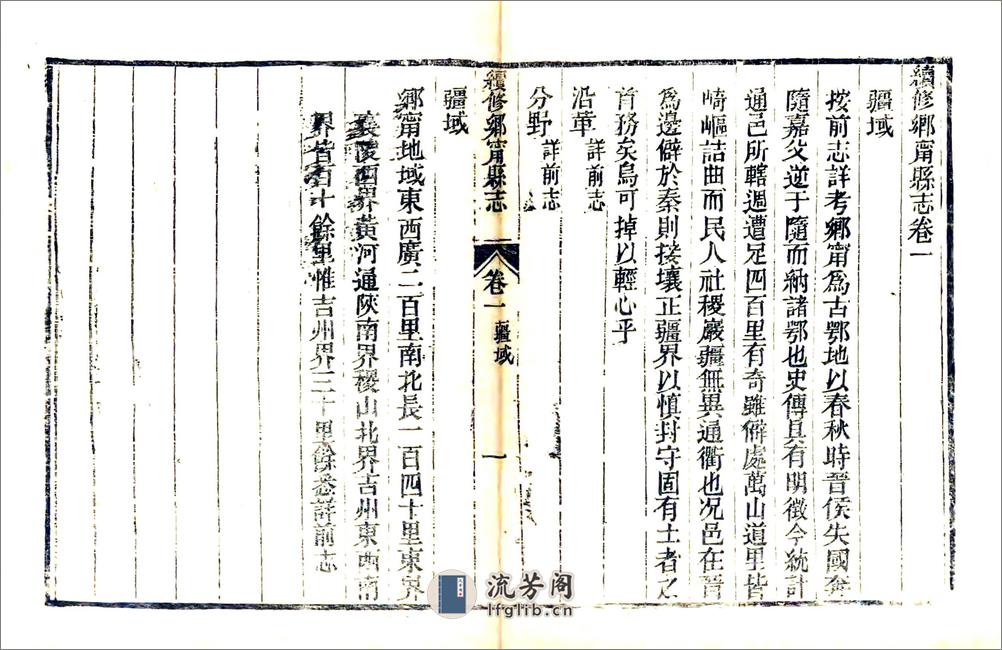 續修鄉甯縣志卷一
疆域
按前志詳考鄉甯爲古鄂地以春秋時晉侯失國奔
隨嘉父逆于隨而納諸鄂也史傳具有明徵今統計
通邑所轄週遭足四百里有奇雖僻處萬山道里皆
崎嶇詰曲而民人社稷巖疆無異通衢也况邑在晉
爲邊僻於秦則接壤正疆界以慎封守固有土者之
首務矣烏可掉以輕心乎
沿革 詳前志
分野 詳前志
續修鄉甯縣志 卷一 疆域 一
疆域
鄉甯地域東西廣二百里南北長一百四十里東界
襄陵西界黃河通陝南界稷山北界吉州東西南
界皆百十餘里惟吉州界三十里餘悉詳前志
流芳阁
lfglib.cn